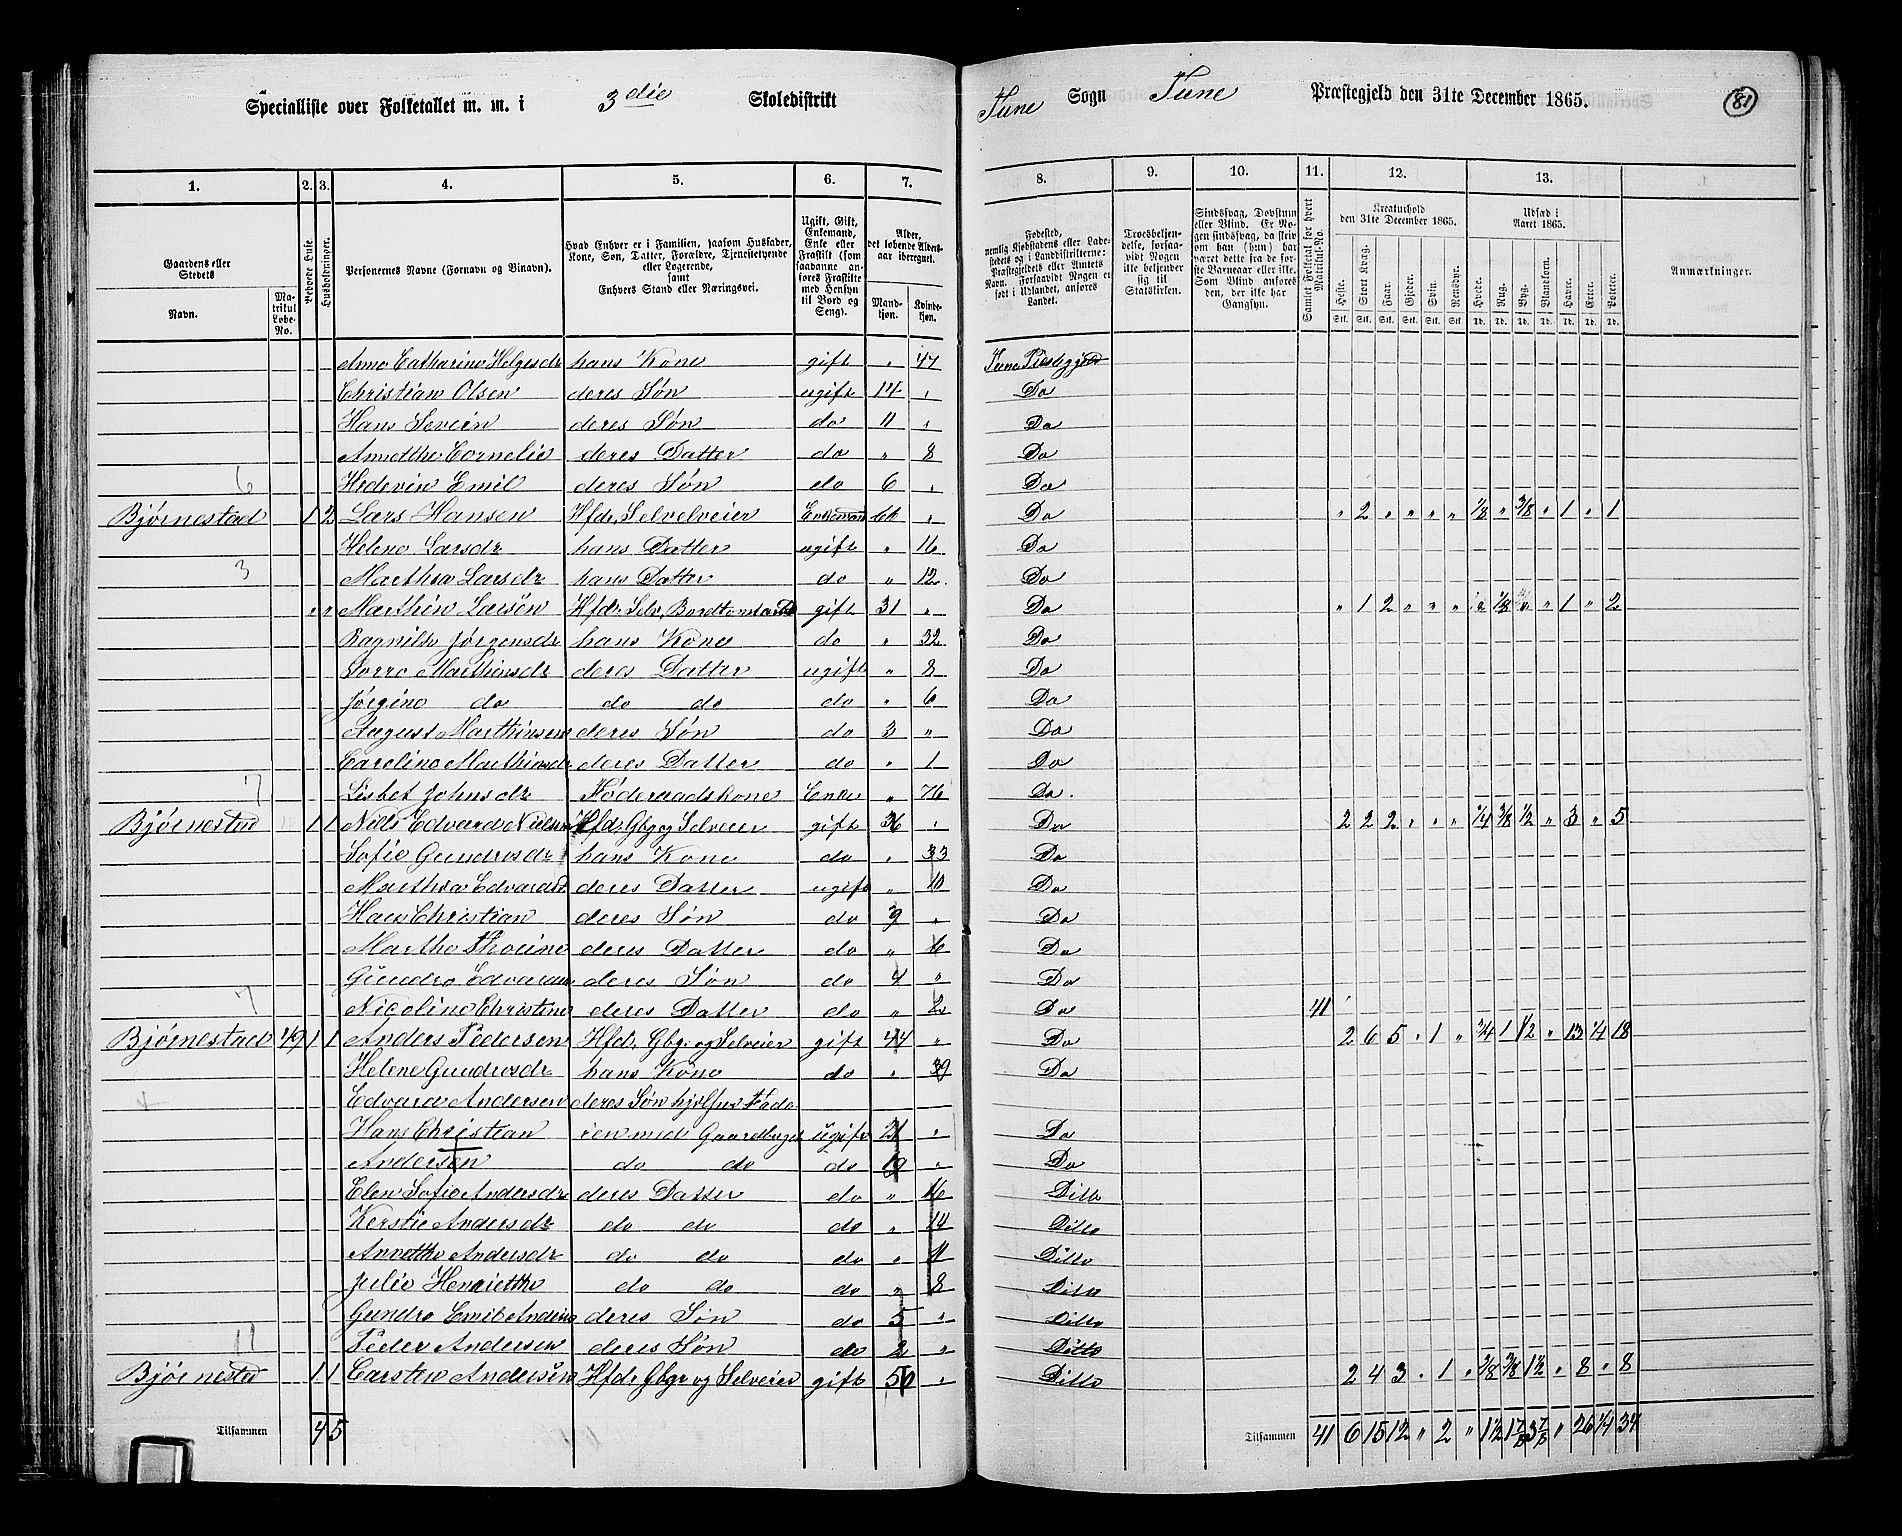 Specialliste over Folketallet m. m. i 3die Skoledistrikt Tune Sogn Tune Præstegjeld den 31te December 1865. 81
1. 2. 3. 4. 5. 6. 7. 8. 9. 10. 11. 12. 13.
Gaardens eller Stedets
Navn.
Matrikul Løbe-No.
Beboede Huse.
Husholdninger.
Personernes Navne (Fornavn og Binavn).
Hvad Enhver er i Familien, saasom Husfader, Kone, Søn, Datter, Forældre, Tjenestetyende eller Logerende, samt Enhvers Stand eller Næringsvei.
Ugift, Gift, Enkemand, Enke eller Fraskilt (som saadanne anføres Fraskilte med Hensyn til Bord og Seng).
Alder, det løbende Alders-aar iberegnet.
Mand-kjøn. Kvinde-kjøn.
Fødested, nemlig Kjøbstadens eller Ladestedets og i Landdistrikterne: Præstegjeldets eller Amtets Navn. Forsaavidt Nogen er født i Udlandet, anføres Landet.
Troesbekjendelse, forsaavidt Nogen ikke bekjender sig til Statskirken.
Sindssvag, Døvstum eller Blind. Er Nogen sindssvag, da skrives han (hun) har været dette fra de første Barneaar eller ikke. Som Blind anføres den, der ikke har Gangsyn.
Samlet Folketal for hvert Matrikul-No.
Kreaturhold den 31te December 1865.
Heste. Stort Kvæg. Faar. Gjeder. Svin. Rensdyr.
Udsæd i Aaret 1865.
Hvede. Rug. Byg. Blandkorn. Havre. Erter. Poteter.
Anmærkninger.
Anne Catharine Helgesdr hans Kone gift " 47 Tune Præstegjeld
Christian Olsen deres Søn ugift 14 " Do
Hans deres Søn do 11 " Do
Annette Cornelie deres Datter do " 8 Do
6 Hedevin Emil deres Søn do 6 " Do
Bjørnestad 1 2 Lars Hansen Hfdr Selveier Enkemand 66 " Do " 2 " " " " 1/8 " 3/8 " 1 " 1
Helene Larsdr hans Datter ugift " 16 Do
3 Marthea Larsdr hans Datter do " 12 Do
" " Marthin Larsen Hfdr Selv. gift 31 " Do " 1 2 " " " " 1/8 " 1 " 2
Ragnild Jørgensdr hans Kone do " 32 Do
Marthinsdr deres Datter ugift " 8 Do
Jørgine do do do do " 6 Do
August Marthinsen deres Søn do 3 " Do
Caroline Marthinsdr deres Datter do " 1 Do
7 Lisbet Johnsdr Føderaadskone Enke " 76 Do
Bjørnestad 1 1 Niels Edvard Nielsen Hfdr Gbg og Selveier gift 36 " Do 2 2 2 " " " 1/4 3/8 1/2 " 3 " 5
Sofie Gundrosdr hans Kone do " 33 Do
Marthea Edvardsd deres Datter ugift " 10 Do
Hans Christian deres Søn do 9 " Do
Marthe Tholine deres Datter do " 6 Do
Gundro Edvardsen deres Søn do 4 " Do
7 Nicoline Christine deres Datter do " 2 Do 41
Bjørnestad 49 1 1 Anders Pedersen Hfdr Gbg. og Selveier gift 44 " Do 2 6 5 " 1 " 3/4 1 1/2 " 13 1/4 18
Helene Gundrosdr hans Kone do " 39 Do
Edvard Andersen deres Søn hjelper Fade-
Hans Christian ren med Gaardbruget ugift 21 " Do
Andersen do do do 19 " Do
Elen Sofie Andersdr deres Datter do " 16 Ditto
Kerstie Andersdr do do do " 14 Ditto
Annette Andersdr do do do " 11 Ditto
Julie Henriette do do do " 8 Ditto
Gundro Emil Anders deres Søn do 5 " Ditto
11 Peder Andersen deres Søn do 2 " Ditto
Bjørnestad 1 1 Carsten Andersen Hfdr Gbgr og Selveier gift 50 " Ditto 2 4 3 " 1 " 3/8 3/8 1 1/2 " 8 " 8
Tilsammen 4 5 Tilsammen 41 6 15 12 " 2 " 1 1/2 1 7/8 3 7/8 " 26 1/4 34